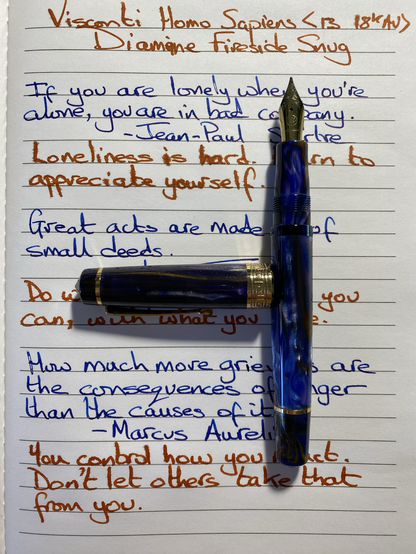 Visconti Homo Sapiens <13 18k AU>
Diamine Fireside Snug
If you are lonely when you're
alone, you are in bad company.
-Jean-Paul Sartre
Loneliness is hard. Learn to
appreciate yourself.
Great acts are made of
small deeds.
Do you
can, with what you
How much more grievous are
the consequences of anger
than the causes of it
-Marcus Aurelius
You control how you act.
Don't let others take that
from you.